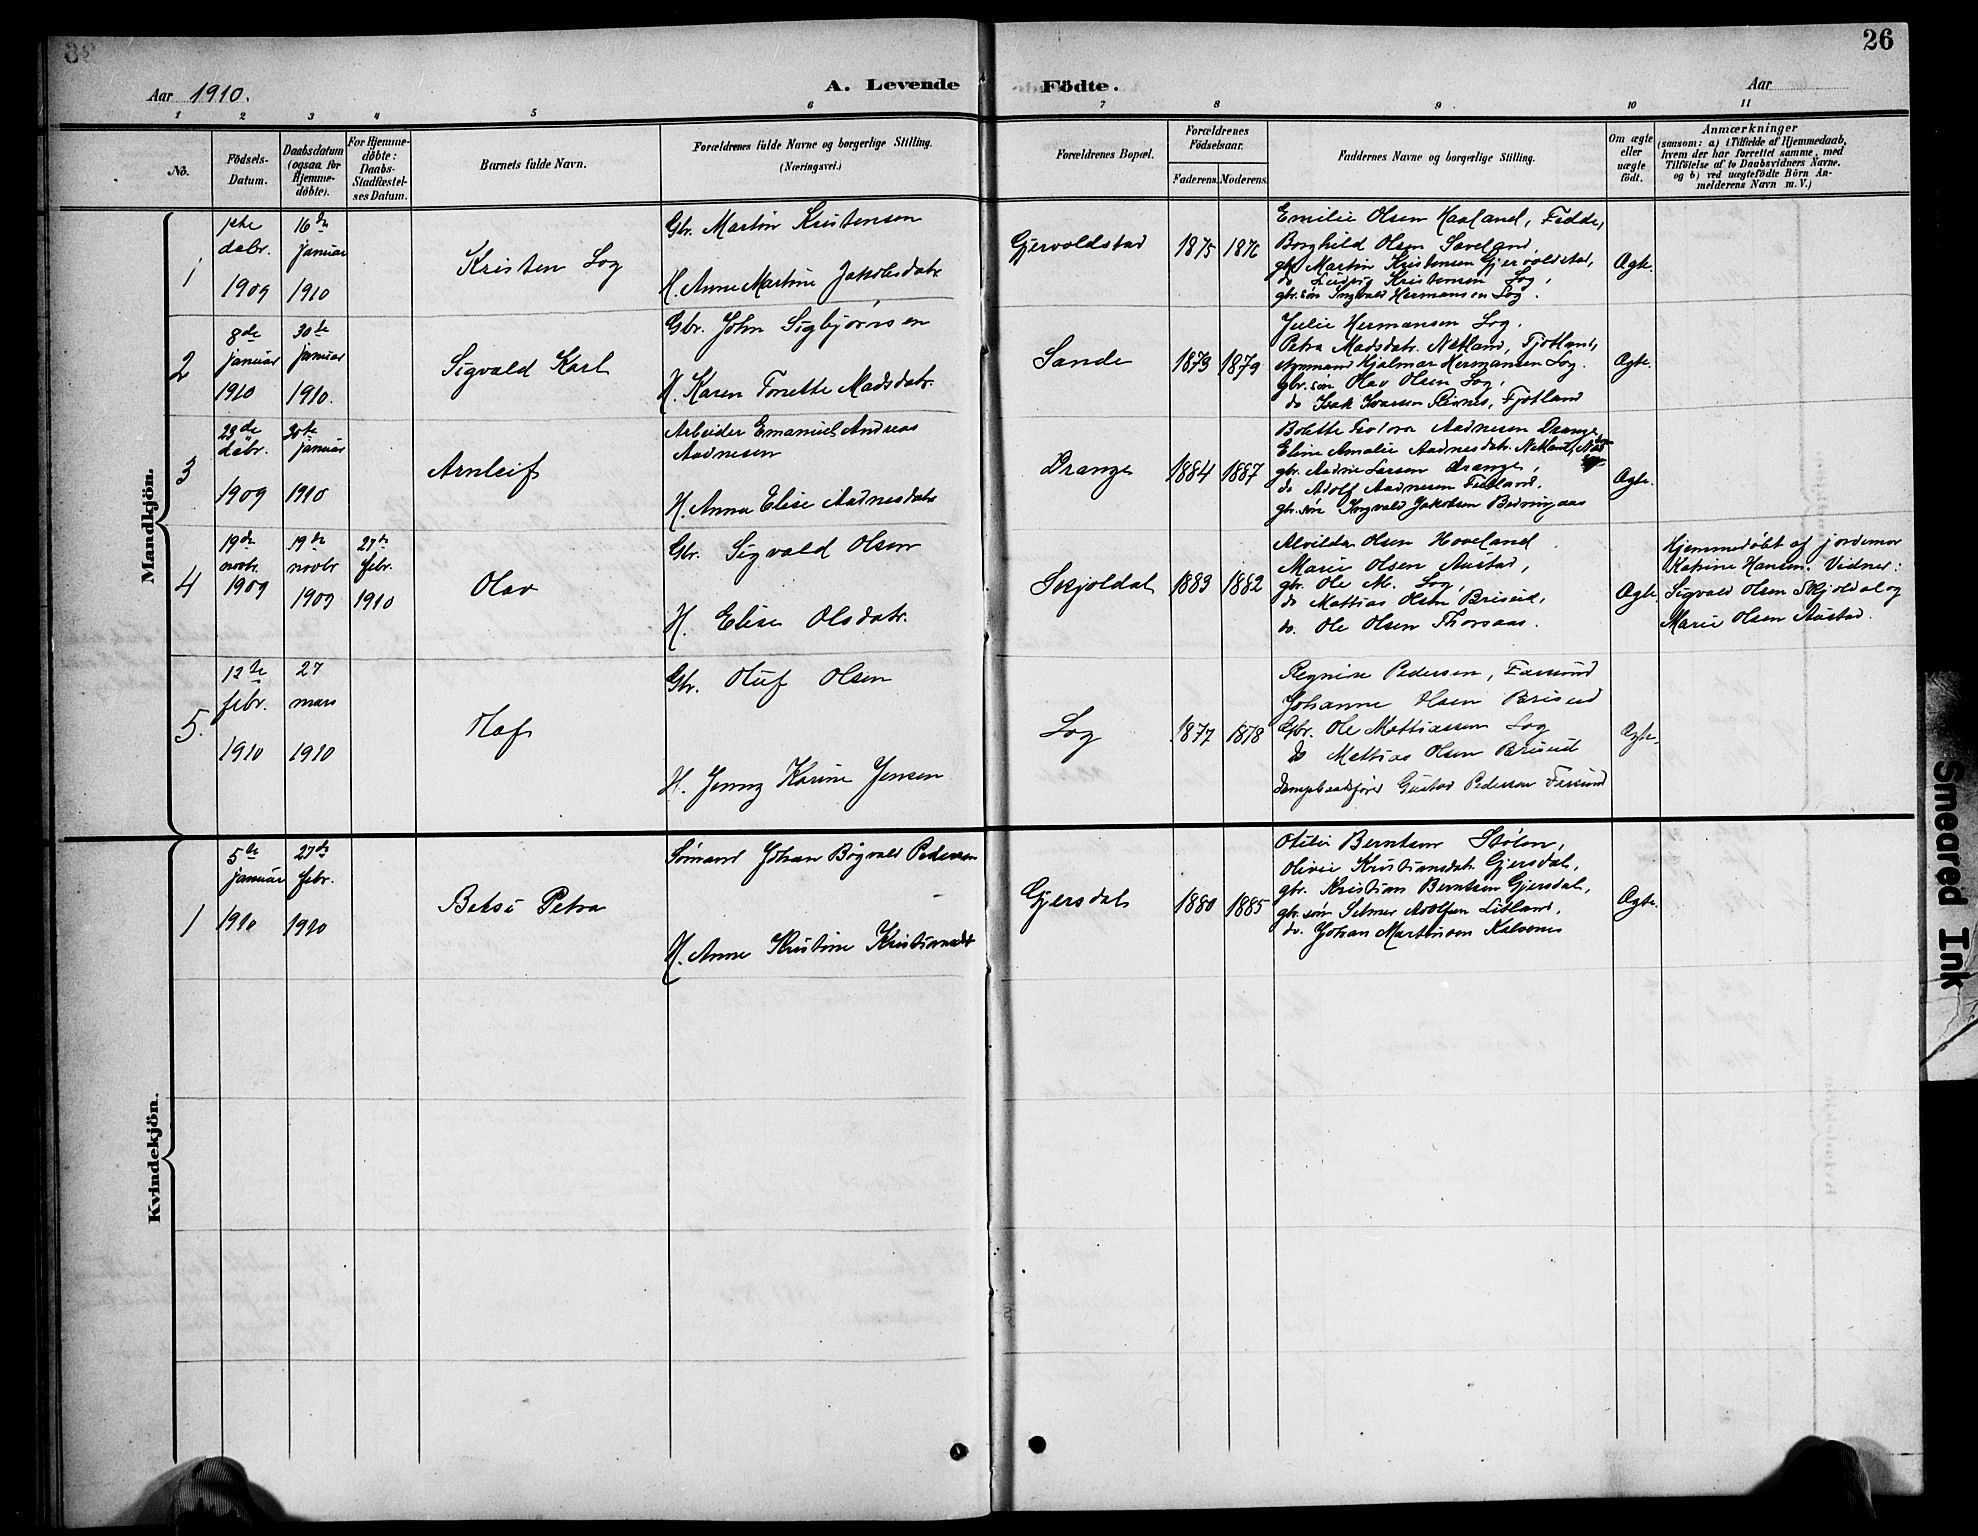 26
Aar 1910.
A. Levende Födte.
Aar
1 2 3 4 5 6 7 8 9 10 11
No.
Födsels-
Datum.
Daabsdatum
(ogsaa for
Hjemme-
döbte).
For Hjemme-
döbte:
Daabs-
Stadfæstel-
ses Datum.
Barnets fulde Navn.
Forældrenes fulde Navne og borgerlige Stilling.
(Næringsvei.)
Forældrenes Bopæl.
Forældrenes
Födselsaar.
Faderens. Moderens.
Faddernes Navne og borgerlige Stilling.
Om ægte
eller
uægte
födt.
Anmærkninger
(saasom: a) i Tilfælde af Hjemmedaab,
hvem der har forrettet samme, med
Tilföielse af to Daabsvidners Navne.
og b) ved uægtefödte Börn An-
melderens Navn m. V.)
Mandkjön.
1
1ste
debr.
1909
16de
januar
1910
Kristen Log
Gbr. Martin Kristensen
H. Anne Martine Jakobsdatr
Gjervoldstad
1875 1876
Emilie Olsen Haaland, Fedde,
Borghild Olsen Saveland,
gbr. Martin Kristensen Gjervoldstad,
do Ludvig Kristensen Log,
gbr. sön Ingvald Hermansen Log.
Ægte.
2
8de
januar
1910
30te
januar
1910.
Sigvald Karl
Gbr. John Sigbjørnsen
H. Karen Tonette Madsdatr.
Sande
1873 1879
Julie Hermansen Log.
Petra Madsdatr. Netland, Fjotland,
Hjalmar Hermansen Log.
gbr. sön Olav Olsen Log,
do Isak Ivarsen Reines, Fjotland
Ægte.
3
23de
debr.
1909
30te
januar
1910
Arnleif
Arbeider Emanuel Andreas
Aadnesen
H. Anna Elise Aadnesdatr
Drange
1884 1887
Bolette Teodora Aadnesen Drange,
Eline Amalie Aadnesdatr. Netland,
gbr. Aadne Larsen Drange,
do Adolf Aadnesen Fidland.
gbr. sön Ingvald Jakobsen Birkeaas
Ægte.
4
19de
novbr.
1909
19de
novbr
1909
27de
febr.
1910
Olav
Gbr. Sigvald Olsen
H. Elise Olsdatr.
Skjoldal
1883 1882
Alvilda Olsen Hoveland
Marie Olsen Austad,
gbr. Ole M. Log,
do Mattias Olsen Briseid,
do. Ole Olsen Thorsaas.
Ægte.
Hjemmedöbt af jordemor
Katrine Hansen. Vidner:
Sigvald Olsen Skjoldal og
Marie Olsen Austad.
5.
12te
febr.
1910
27
mars
1910
Olaf
Gbr. Oluf Olsen
H. Jenny Karine Jensen
Log
1877 1878
Regnine Pedersen, Farsund
Johanne Olsen Briseid
Gbr. Ole Mattiassen Log
do Mattias Olsen Briseid
Dampbaadsfører Gustav Pedersen Farsund
Ægte.
Kvindekjön.
1
5te
januar
1910
27de
febr.
1910
Betsi Petra
Sømand Johan Bøgvald Pedersen
H. Anne Kristine Kristiansdtr
Gjersdal
1880 1885
Otilie Berntsen Stölen,
Olivie Kristiansdatr. Gjersdal,
gbr. Kristian Berntsen Gjersdal,
gbr. sön Selmer Adolfsen Litland,
do. Johan Martinsen Kalvenes
Ægte.
Smeared Ink